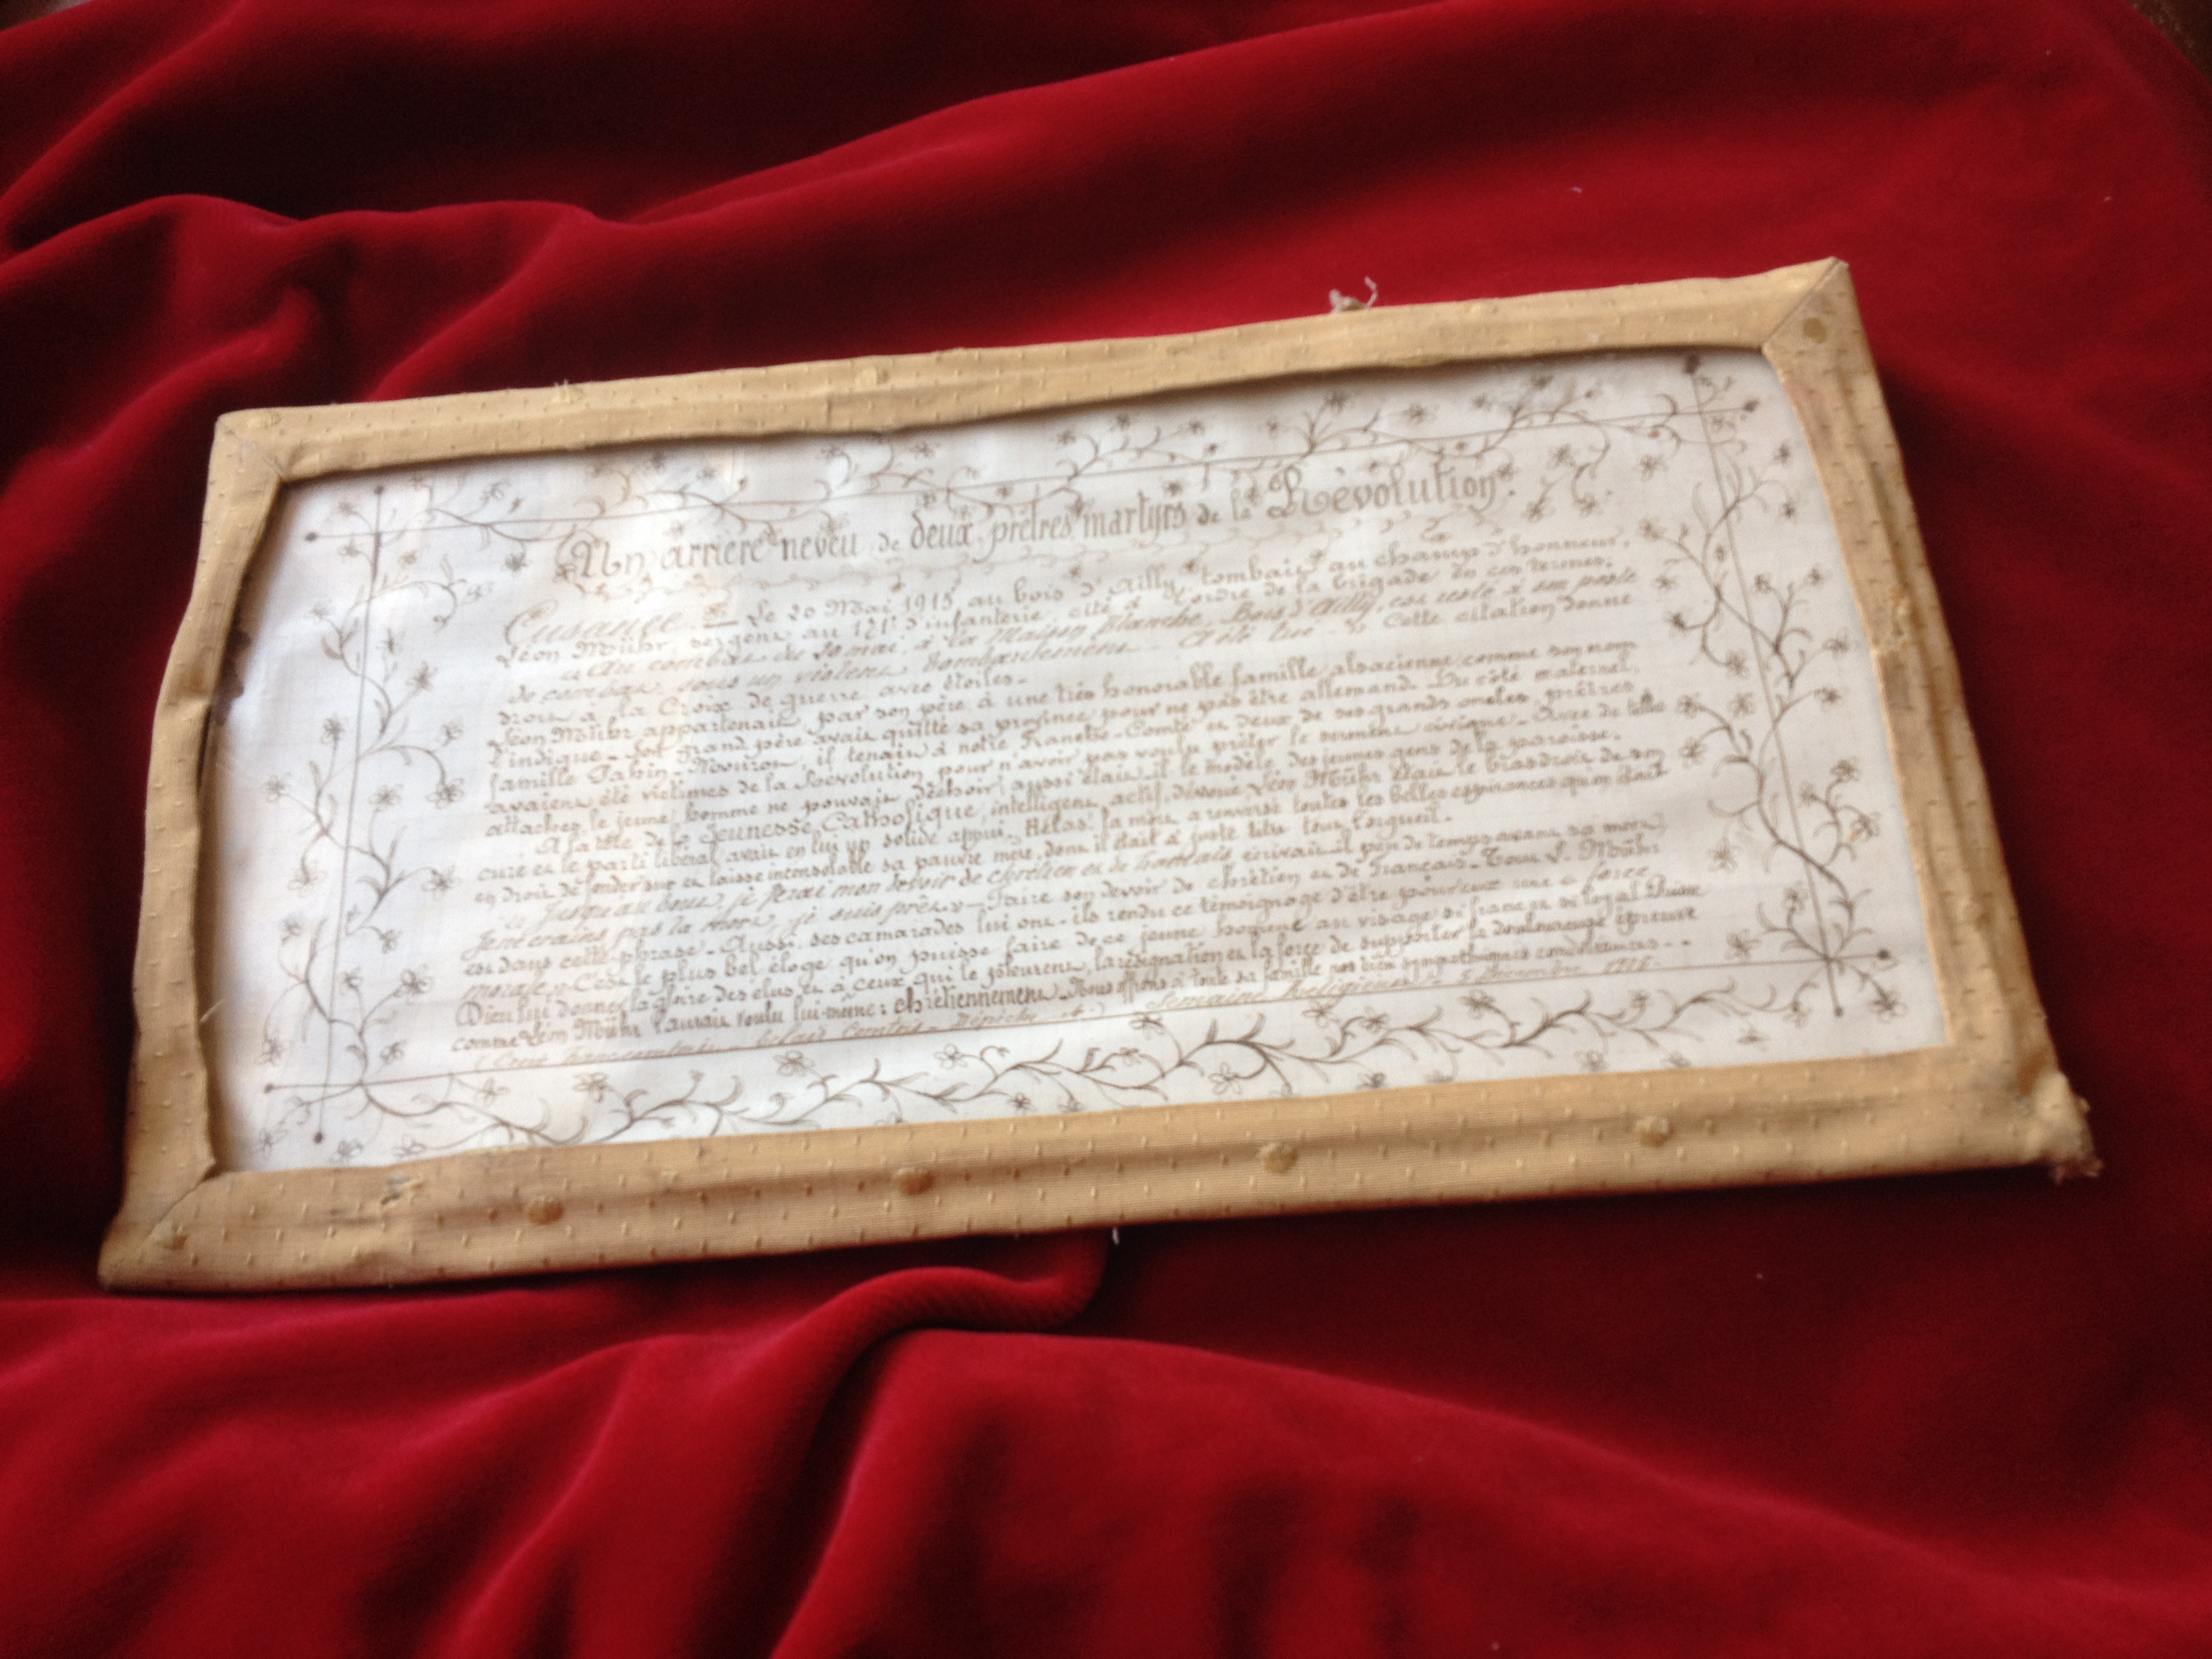 Un arrière neveu de deux prêtres martyrs de la Révolution.
Cusance — Le 20 Mai 1915 au bois d'Ailly, tombait au champ d'honneur,
Léon Mühr sergent au 171e d'infanterie, cité à l'ordre de la brigade en ces termes:
« Au combat du 20 mai à la Maison Blanche, Bois d'Ailly, est resté à son poste
de combat, sous un violent bombardement — A été tué — » Cette citation donne
droit à la Croix de guerre avec étoiles.
Léon Mühr appartenait par son père à une très honorable famille alsacienne comme son nom
l'indique — Son Grand père avait quitté sa province pour ne pas être allemand. Du côté maternel,
famille, il tenait à notre Franche-Comté et deux de ses grands oncles prêtres
avaient été victimes de la Révolution pour n'avoir pas voulu prêter le serment civique — Avec de telles
attaches, le jeune homme ne pouvait déchoir; aussi était-il le modèle des jeunes gens de la paroisse.
A la tête de la Jeunesse Catholique, intelligent, actif, dévoué Léon Mühr était le bras droit de son
curé et le parti libéral avait en lui un solide appui — Hélas! sa mort a renversé toutes les belles espérances qu'on était
en droit de fonder sur et laisse inconsolable sa pauvre mère, dont il était à juste titre tout l'orgueil.
« Jusqu'au bout, je ferai mon devoir de chrétien et de français écrivait-il peu de temps avant sa mort;
je ne crains pas la mort, je suis prêt. » — Faire son devoir de chrétien et de Français — Tout L. Mühr
est dans cette phrase — Aussi, ses camarades lui ont-ils rendu ce témoignage d'être pour eux une « force
morale » C'est le plus bel éloge qu'on puisse faire de ce jeune homme au visage si franc et si loyal. Daigne
Dieu lui donner la gloire des élus et à ceux qui le pleurent, la résignation et la force de supporter la douloureuse épreuve
comme Léon Mühr l'aurait voulu lui-même: chrétiennement — Nous offrons à toute sa famille nos bien sympathiques condoléances - -
(Croix Dépêche Semaine Religieuse Décembre 1915.